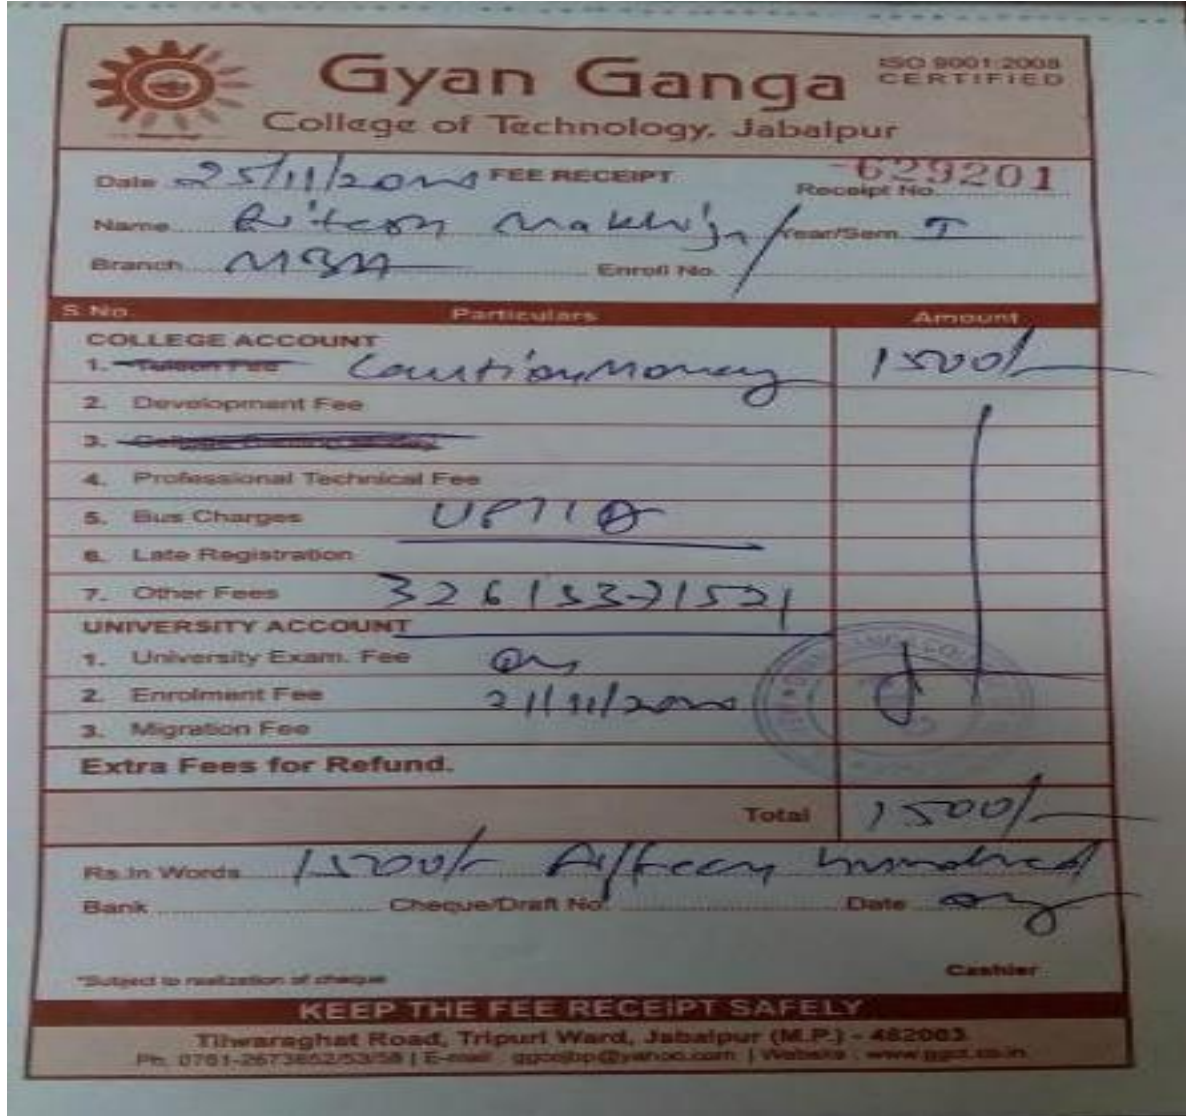 Gyan Ganga
ISO 9001:2008
CERTIFIED
College of Technology, Jabalpur
Date 25/11/20 FEE RECEIPT
629201
Receipt No.
Name Ritesh Makhija Year/Sem I
Branch MBA Enroll No.
S.No. Particulars Amount
COLLEGE ACCOUNT
1. Tuition Fee Caution Money 1500/-
2. Development Fee
3.
4. Professional Technical Fee
5. Bus Charges UPI ID
6. Late Registration
7. Other Fees 326153371521
UNIVERSITY ACCOUNT
1. University Exam. Fee on
2. Enrolment Fee 21/11/20
3. Migration Fee
Extra Fees for Refund.
Total 1500/-
Rs.In Words 1500/- Fifteen hundred
Bank Cheque/Draft No. Date
Cashier
*Subject to realization of cheque
KEEP THE FEE RECEIPT SAFELY
Tilwaraghat Road, Tripuri Ward, Jabalpur (M.P.) - 482003
Ph. 0761-2673652/53/58 | E-mail : ggctjbp@yahoo.com | Website : www.ggct.co.in